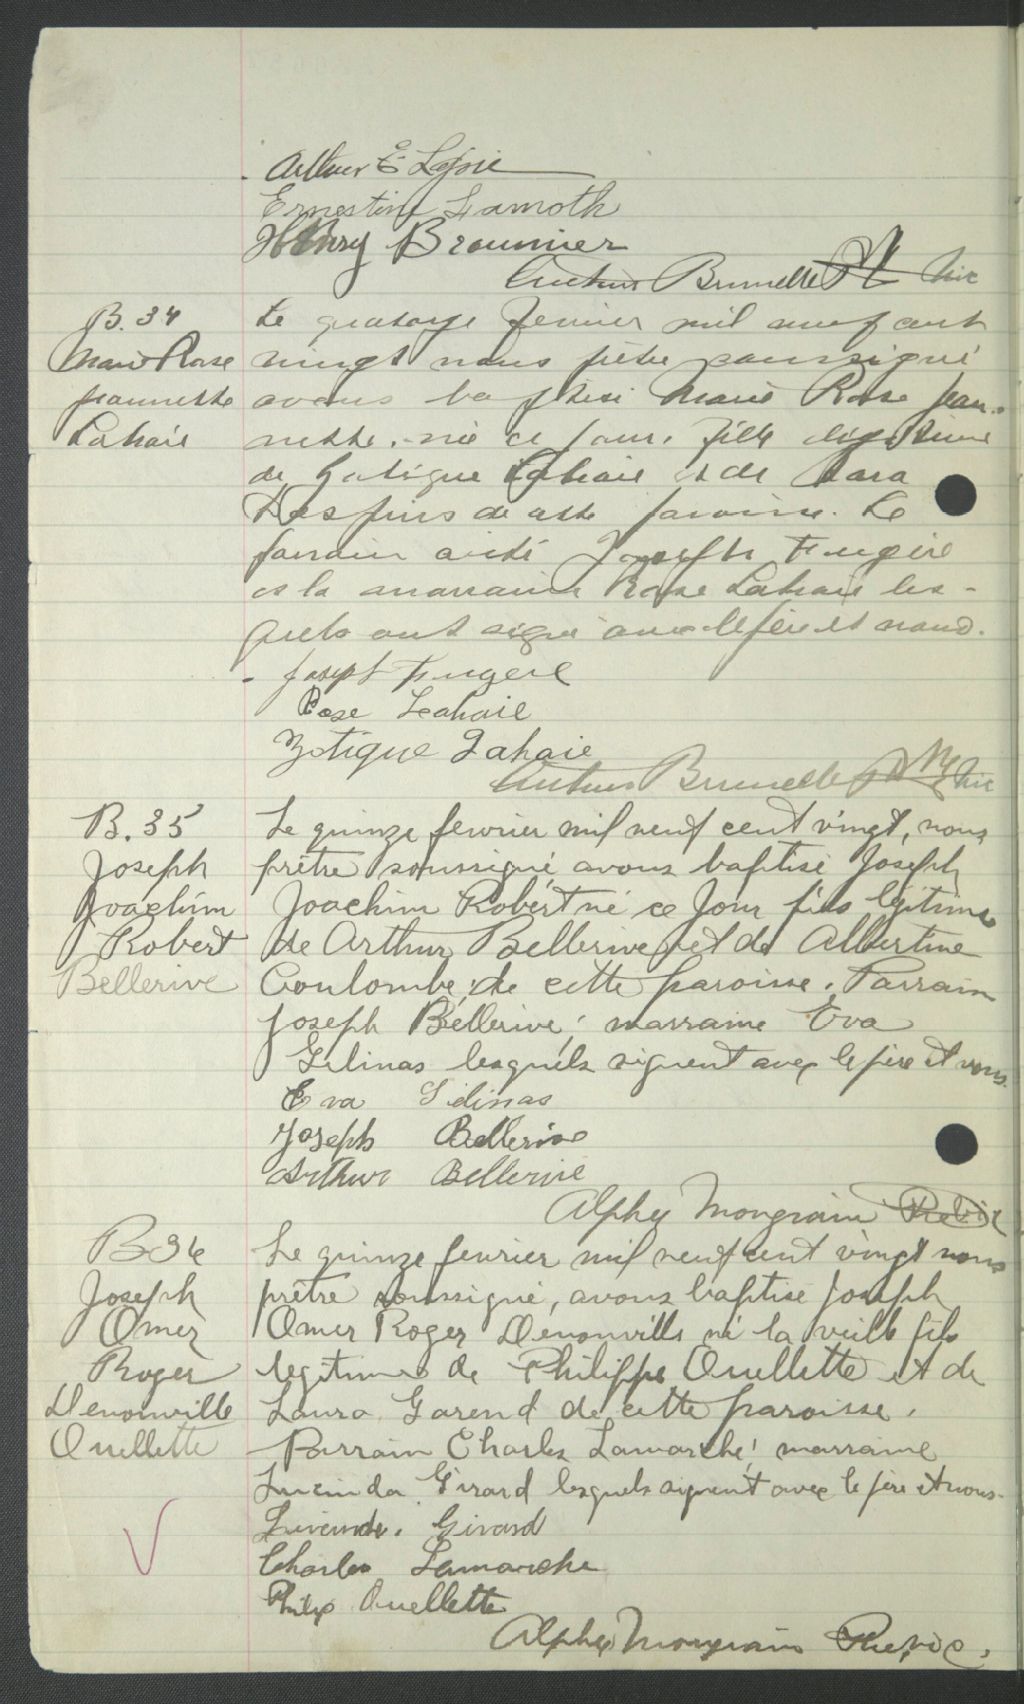 Arthur E Lajoie
Ernestine Lamoth
Henry Brounier
Arthur Brunelle Ptr Vic
B. 34
Marie Rose
Jeannette
Lahaie
Le quatorze fevrier mil neuf cent
vingt nous prêtre soussigné
avons baptisé Marie Rose Jean-
nette, née ce jour, fille légitime
de Zotique Lahaie et de Clara
Despins de cette paroisse. Le
parrain a été Joseph Fugère
et la marraine Rose Lahaie les-
quels ont signé avec le père et nous.
Joseph Fugere
Rose Lahaie
Zotique Lahaie
Arthur Brunelle Ptr Vic
B. 35
Joseph
Joachim
Robert
Bellerive
Le quinze fevrier mil neuf cent vingt, nous
prêtre soussigné, avons baptisé Joseph
Joachim Robert né ce jour fils légitime
de Arthur Bellerive et de Albertine
Coulombe, de cette paroisse. Parrain
Joseph Bellerive; marraine Eva
Gelinas lesquels signent avec le père et nous.
Eva Gelinas
Joseph Bellerive
Arthur Bellerive
Alphy Mongrain Ptre Vic
B36
Joseph
Omer
Roger
Denonville
Ouellette
Le quinze fevrier mil neuf cent vingt nous
prêtre soussigné, avons baptisé Joseph
Omer Roger Denonville né la veille fils
legitime de Philippe Ouellette et de
Laura Garend de cette paroisse.
Parrain Charles Lamarche; marraine
Lucinda Girard lesquels signent avec le père et nous.
Girard
Charles Lamarche
Philip Ouellette
Alphy Mongrain Ptre, vic.